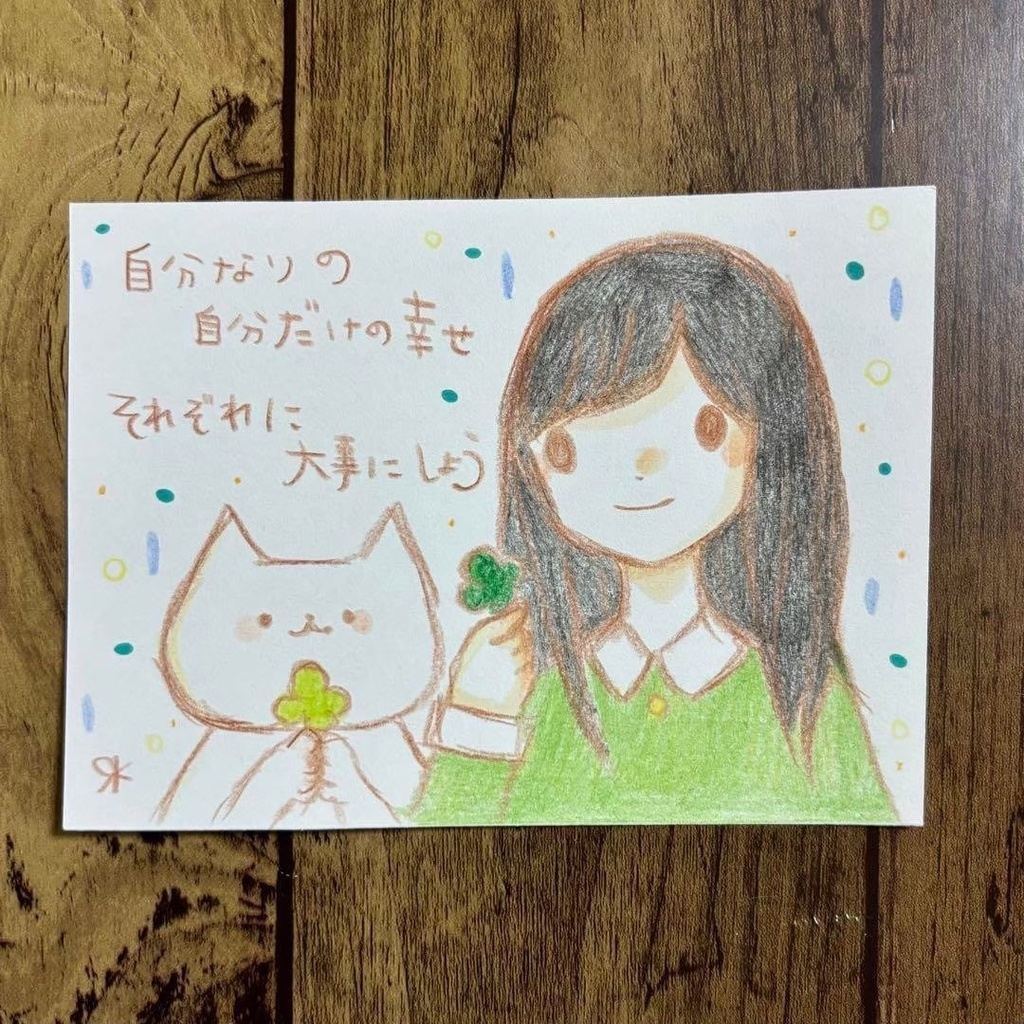 自分なりの
自分だけの幸せ
それぞれに
大事にしよう